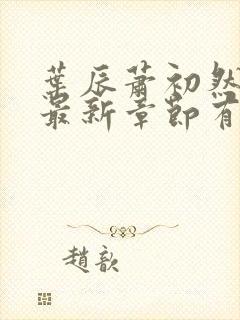 葉辰蕭初然
最新章節有
趙歆